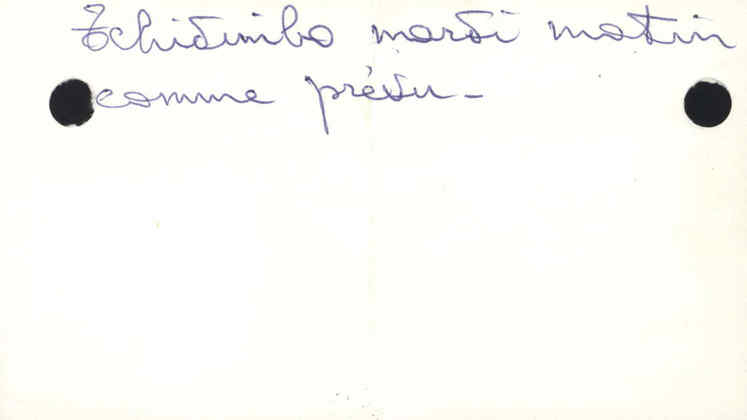 Tchidimbo mardi matin
comme prévu -